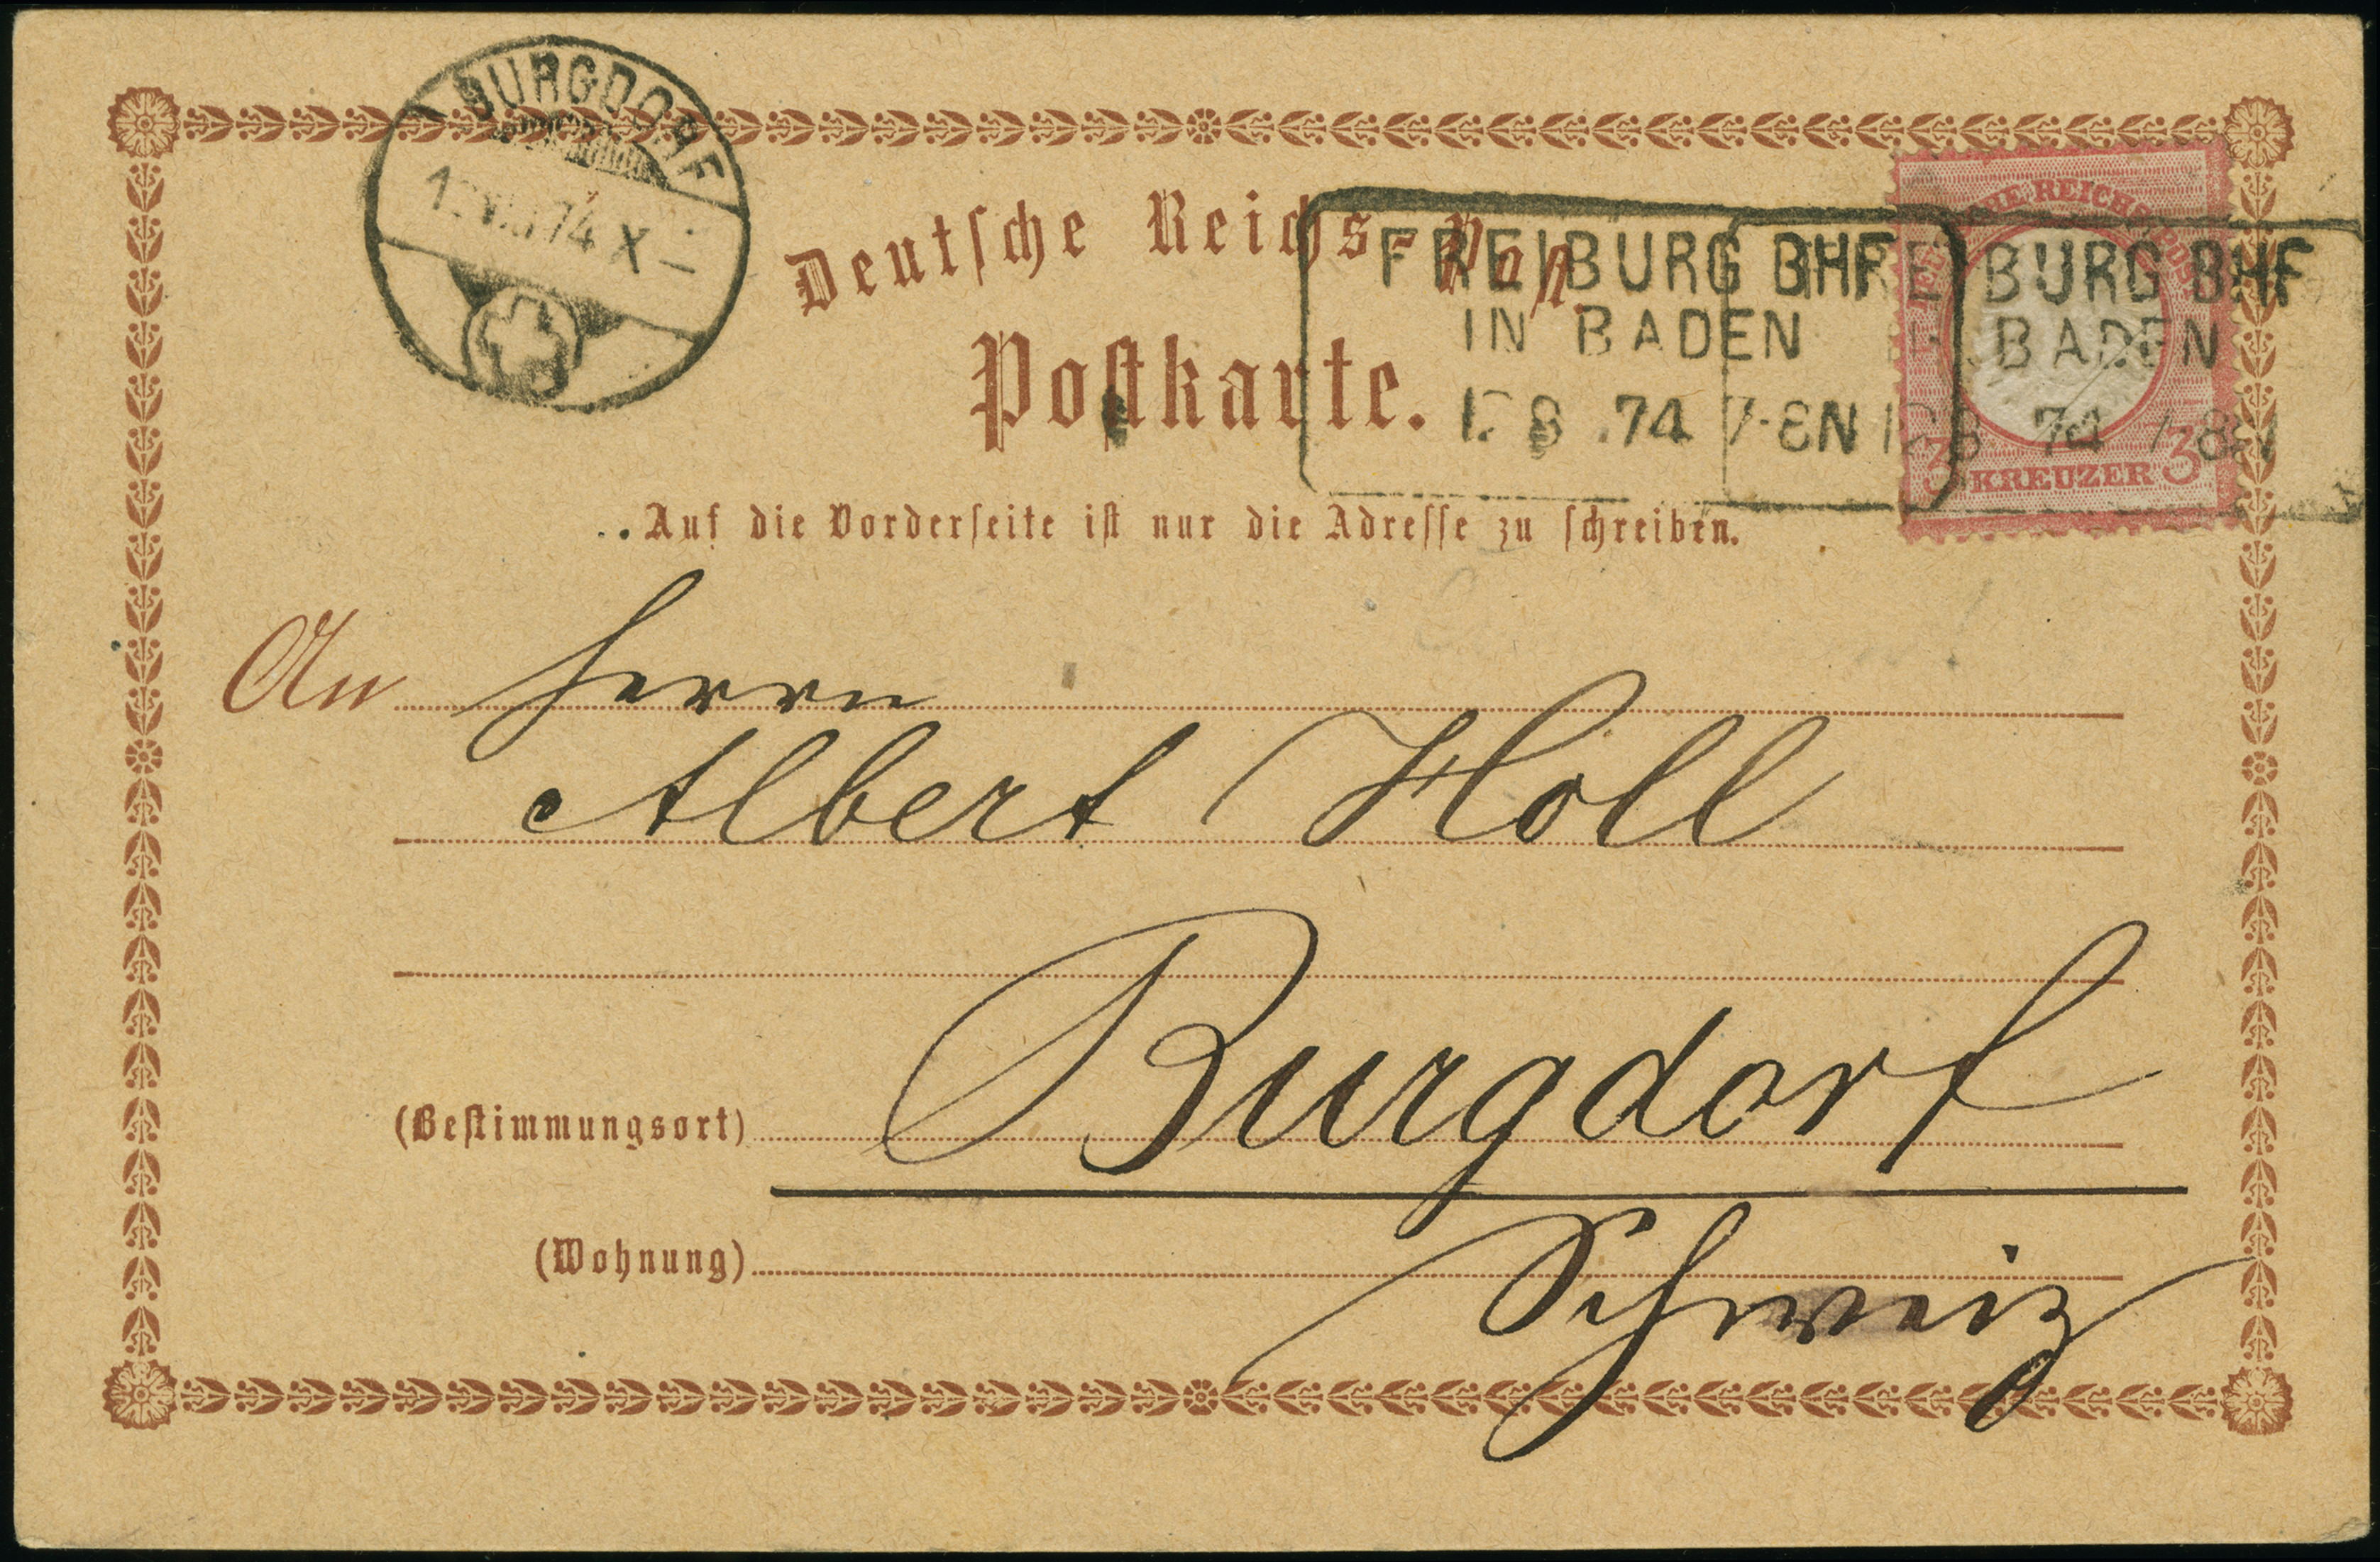 BURGDORF
VIII 74 X –
Deutſche Reichs-Poſt.
FREIBURG BHF
IN BADEN
8 .74 7-8N
FREIBURG BHF
BADEN
12 8 74 7-8N
DEUTSCHE REICHS-POST
3 KREUZER 3
Poſtkarte.
Auf die Vorderſeite iſt nur die Adreſſe zu ſchreiben.
An Herrn
Albert Holl
(Beſtimmungsort) Burgdorf
(Wohnung) Schweiz